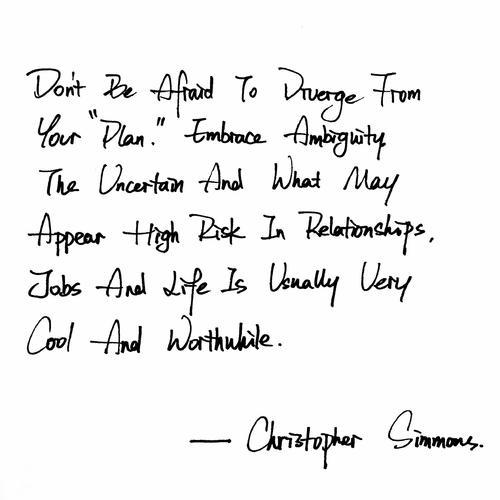 Don't Be Afraid To Diverge From
Your "Plan." Embrace Ambiguity
The Uncertain And What May
Appear High Risk In Relationships,
Jobs And Life Is Usually Very
Cool And Worthwhile.
— Christopher Simmons.